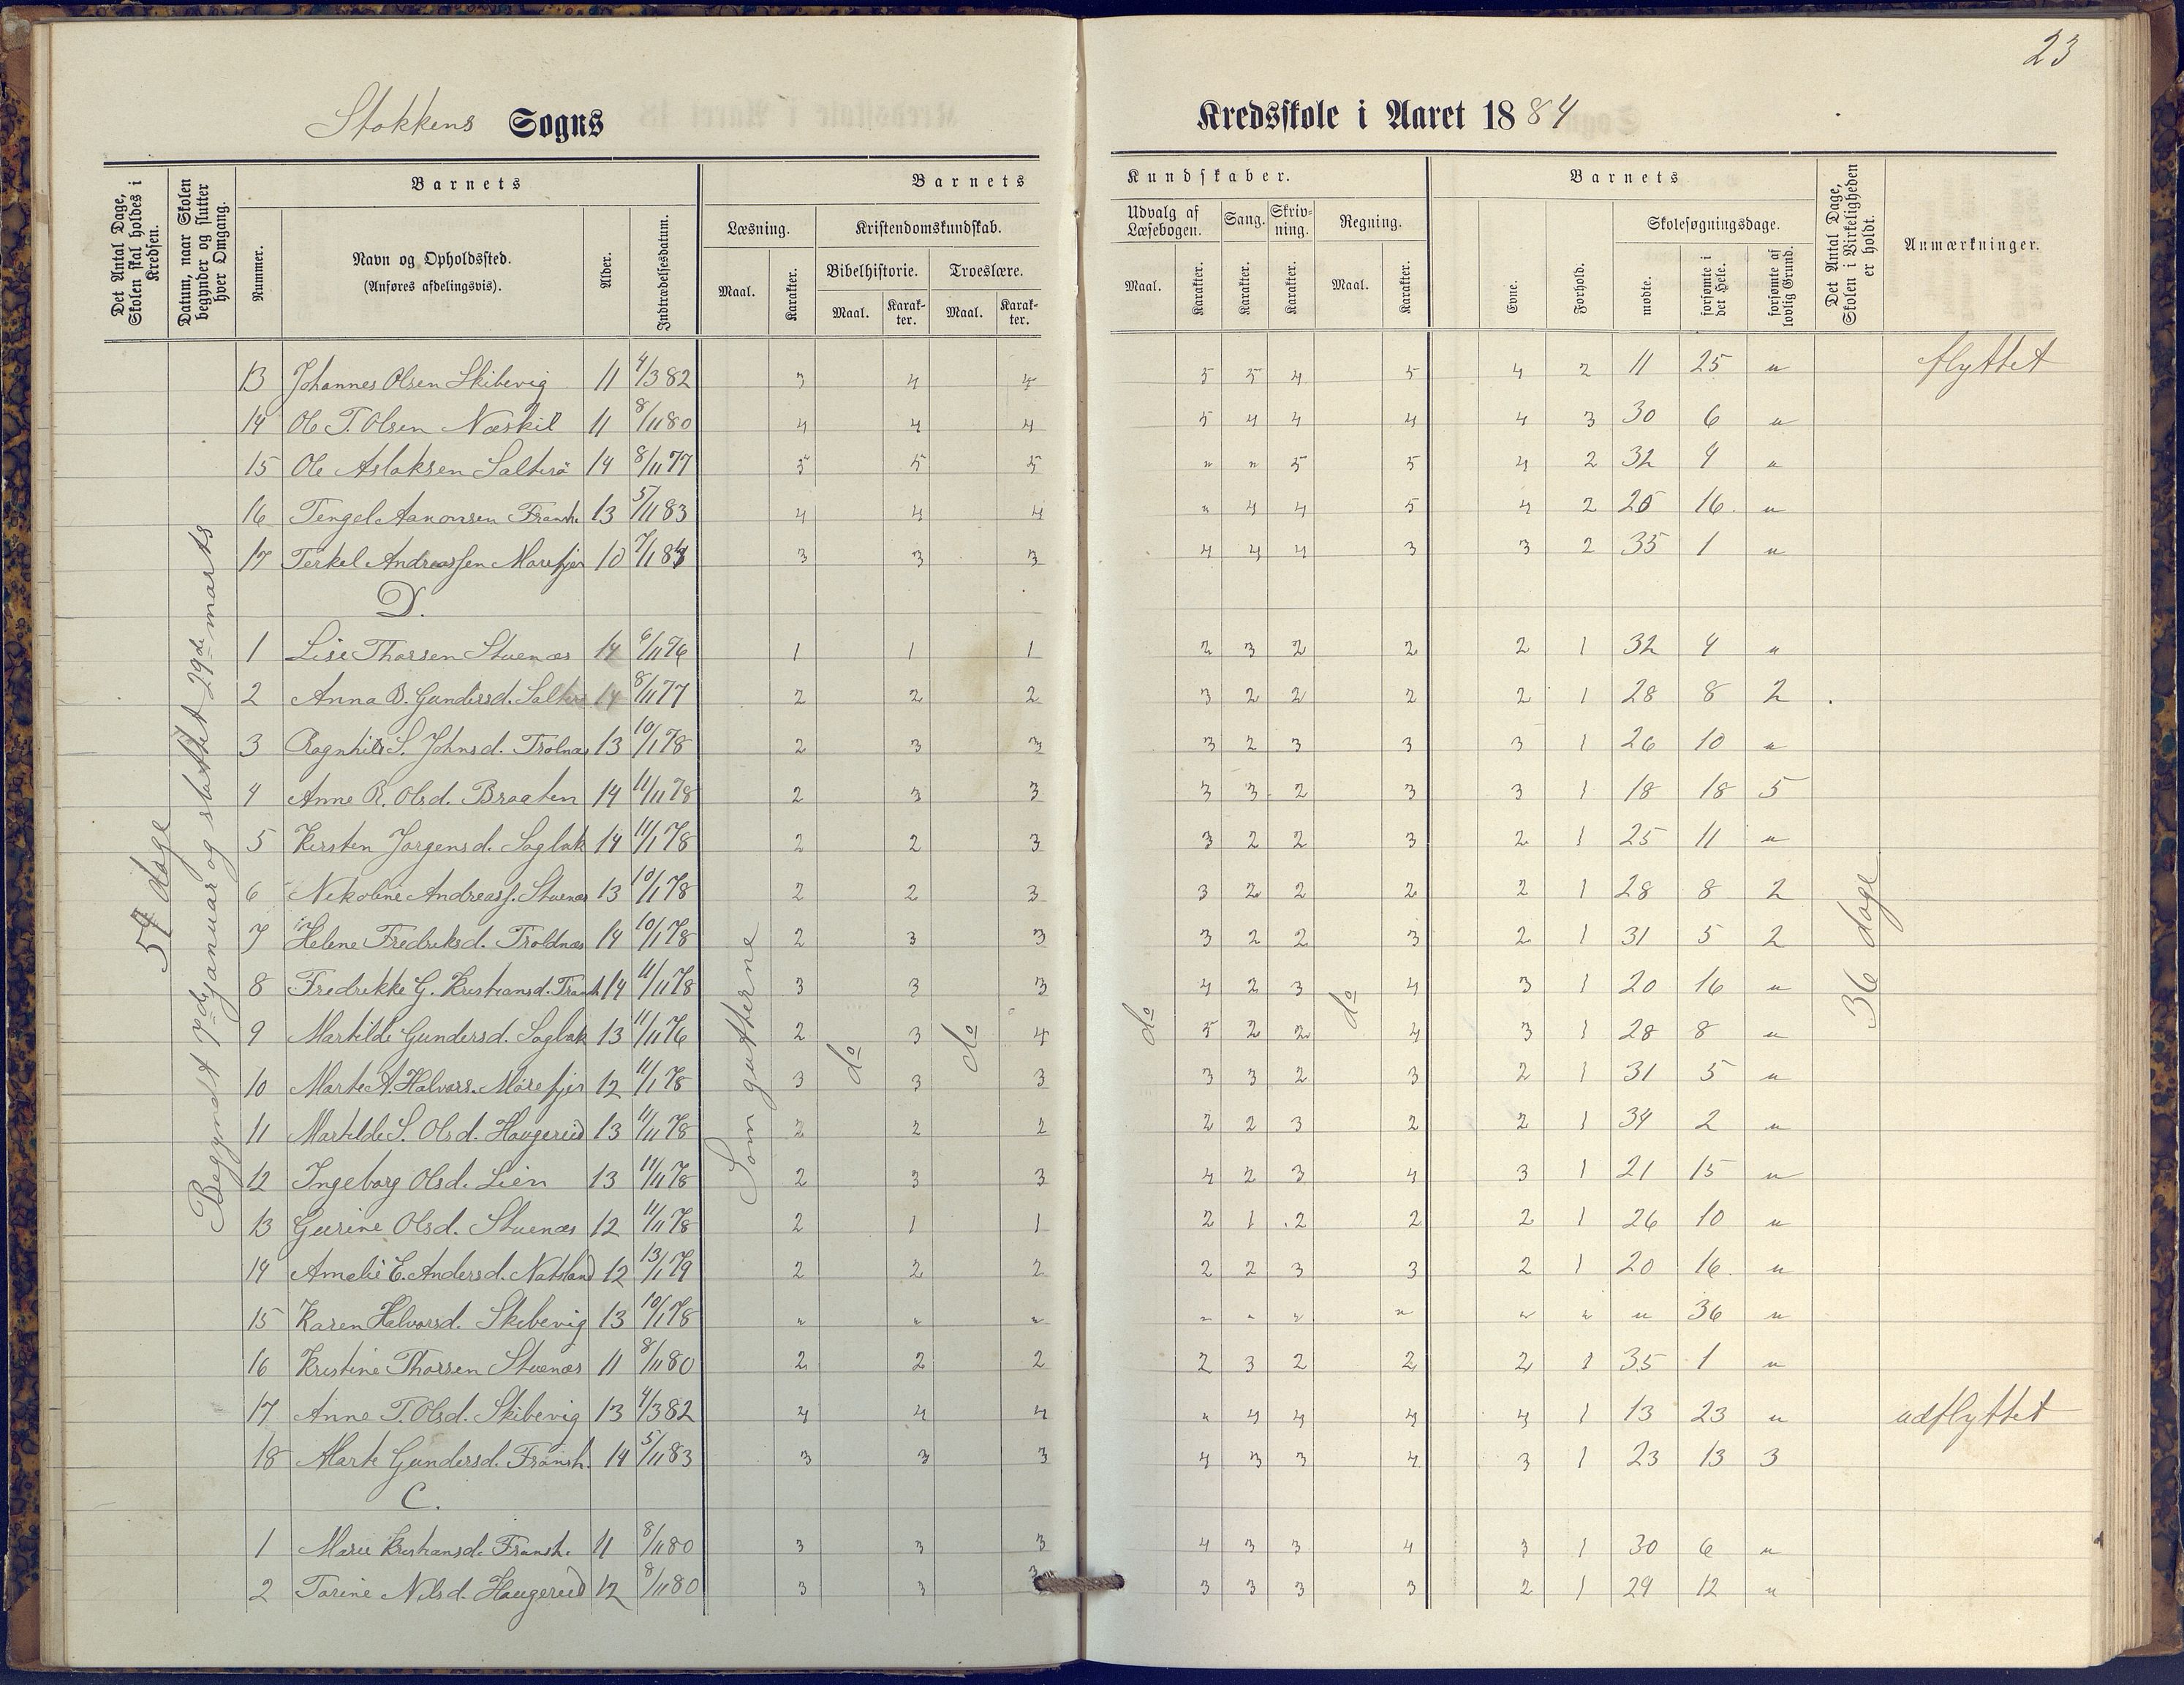 23
Stokkens Sogns Kredsskole i Aaret 1884
Det Antal Dage, Skolen skal holdes i Kredsen.
Datum, naar Skolen begynder og slutter hver Omgang.
Barnets
Barnets Kundskaber.
Barnets
Det Antal Dage, Skolen i Virkeligheden er holdt.
Anmærkninger.
Nummer.
Navn og Opholdssted.
(Anføres afdelingsvis).
Alder.
Indtrædelsesdatum.
Læsning.
Kristendomskundskab.
Udvalg af Læsebogen.
Sang.
Skrivning.
Regning.
Evne.
Forhold.
Skolesøgningsdage.
Bibelhistorie.
Troeslære.
Maal. Karakter. Maal. Karakter. Maal. Karakter. Maal. Karakter. Karakter. Karakter. Maal. Karakter.
mødte. forsømte i det Hele. forsømte af lovlig Grund.
57 dage
Begyndt 7de januar og sluttet 29de marts
Som gutterne
do do do do
36 dage
13 Johannes Olsen Skibevig 11 4/3 82 3 4 4 5 5 4 5 4 2 11 25 " flyttet
14 Ole T. Olsen Næskil 11 8/11 80 4 4 4 5 4 4 4 4 3 30 6 "
15 Ole Aslaksen Salterö 14 8/11 77 5 5 5 " " 5 5 4 2 32 4 "
16 Tengel Aanonsen Fransh. 13 5/11 83 4 4 4 " 4 4 5 4 2 20 16 "
17 Terkel Andreassen Morefjer 10 7/1 84 3 3 3 4 4 4 3 3 2 35 1 "
D.
1 Lise Thorsen Stuenæs 14 6/11 76 1 1 1 2 3 2 2 2 1 32 4 "
2 Anna B. Gundersd. Salterö 14 8/11 77 2 2 2 3 2 2 2 2 1 28 8 2
3 Ragnhild S. Johnsd. Trolnæs 13 10/1 78 2 3 3 3 2 3 3 3 1 26 10 "
4 Anne R. Olsd. Braaten 14 11/11 78 2 3 3 3 3 2 3 3 1 18 18 5
5 Kirsten Jorgensd. Sagbak 14 11/1 78 2 2 3 3 2 2 3 2 1 25 11 "
6 Nekoline Andreass. Stuenæs 13 10/1 78 2 2 3 3 2 2 2 2 1 28 8 2
7 Helene Fredreksd. Troldnæs 14 10/1 78 2 3 3 3 2 2 3 2 1 31 5 2
8 Fredrekke G. Kristiansd. Fransh 14 11/11 78 3 3 3 4 2 3 4 3 1 20 16 "
9 Martilde Gundersd. Sagbak 13 11/11 76 2 3 4 5 2 2 4 3 1 28 8 "
10 Marte A. Halvors. Mörefjer 12 11/1 78 3 3 3 3 3 2 3 2 1 31 5 "
11 Martilde S. Olsd. Haugereid 13 11/11 78 2 2 2 2 2 3 2 2 1 34 2 "
12 Ingeborg Olsd. Lien 13 11/11 78 2 3 3 4 2 3 4 3 1 21 15 "
13 Gurine Olsd. Stuenæs 12 11/11 78 2 1 1 2 1 2 2 2 1 26 10 "
14 Amalie E. Andersd. Natsland 12 13/1 79 2 2 2 2 2 3 3 2 1 20 16 "
15 Karen Halvorsd. Skibevig 13 10/1 78 " " " " " " " " " " 36 "
16 Kristine Thorsen Stuenæs 11 8/11 80 2 2 2 2 3 2 2 2 1 35 1 "
17 Anne T. Olsd. Skibevig 13 4/3 82 4 4 4 " 4 4 4 4 1 13 23 " udflyttet
18 Marte Gundersd. Fransh. 14 5/11 83 3 3 3 4 3 3 4 3 1 23 13 3
C.
1 Marie Kristiansd. Fransh. 11 8/11 80 3 3 3 4 3 3 4 3 1 30 6 "
2 Torine Nilsd. Haugereid 12 8/11 80 3 3 3 3 3 3 3 2 1 29 12 "